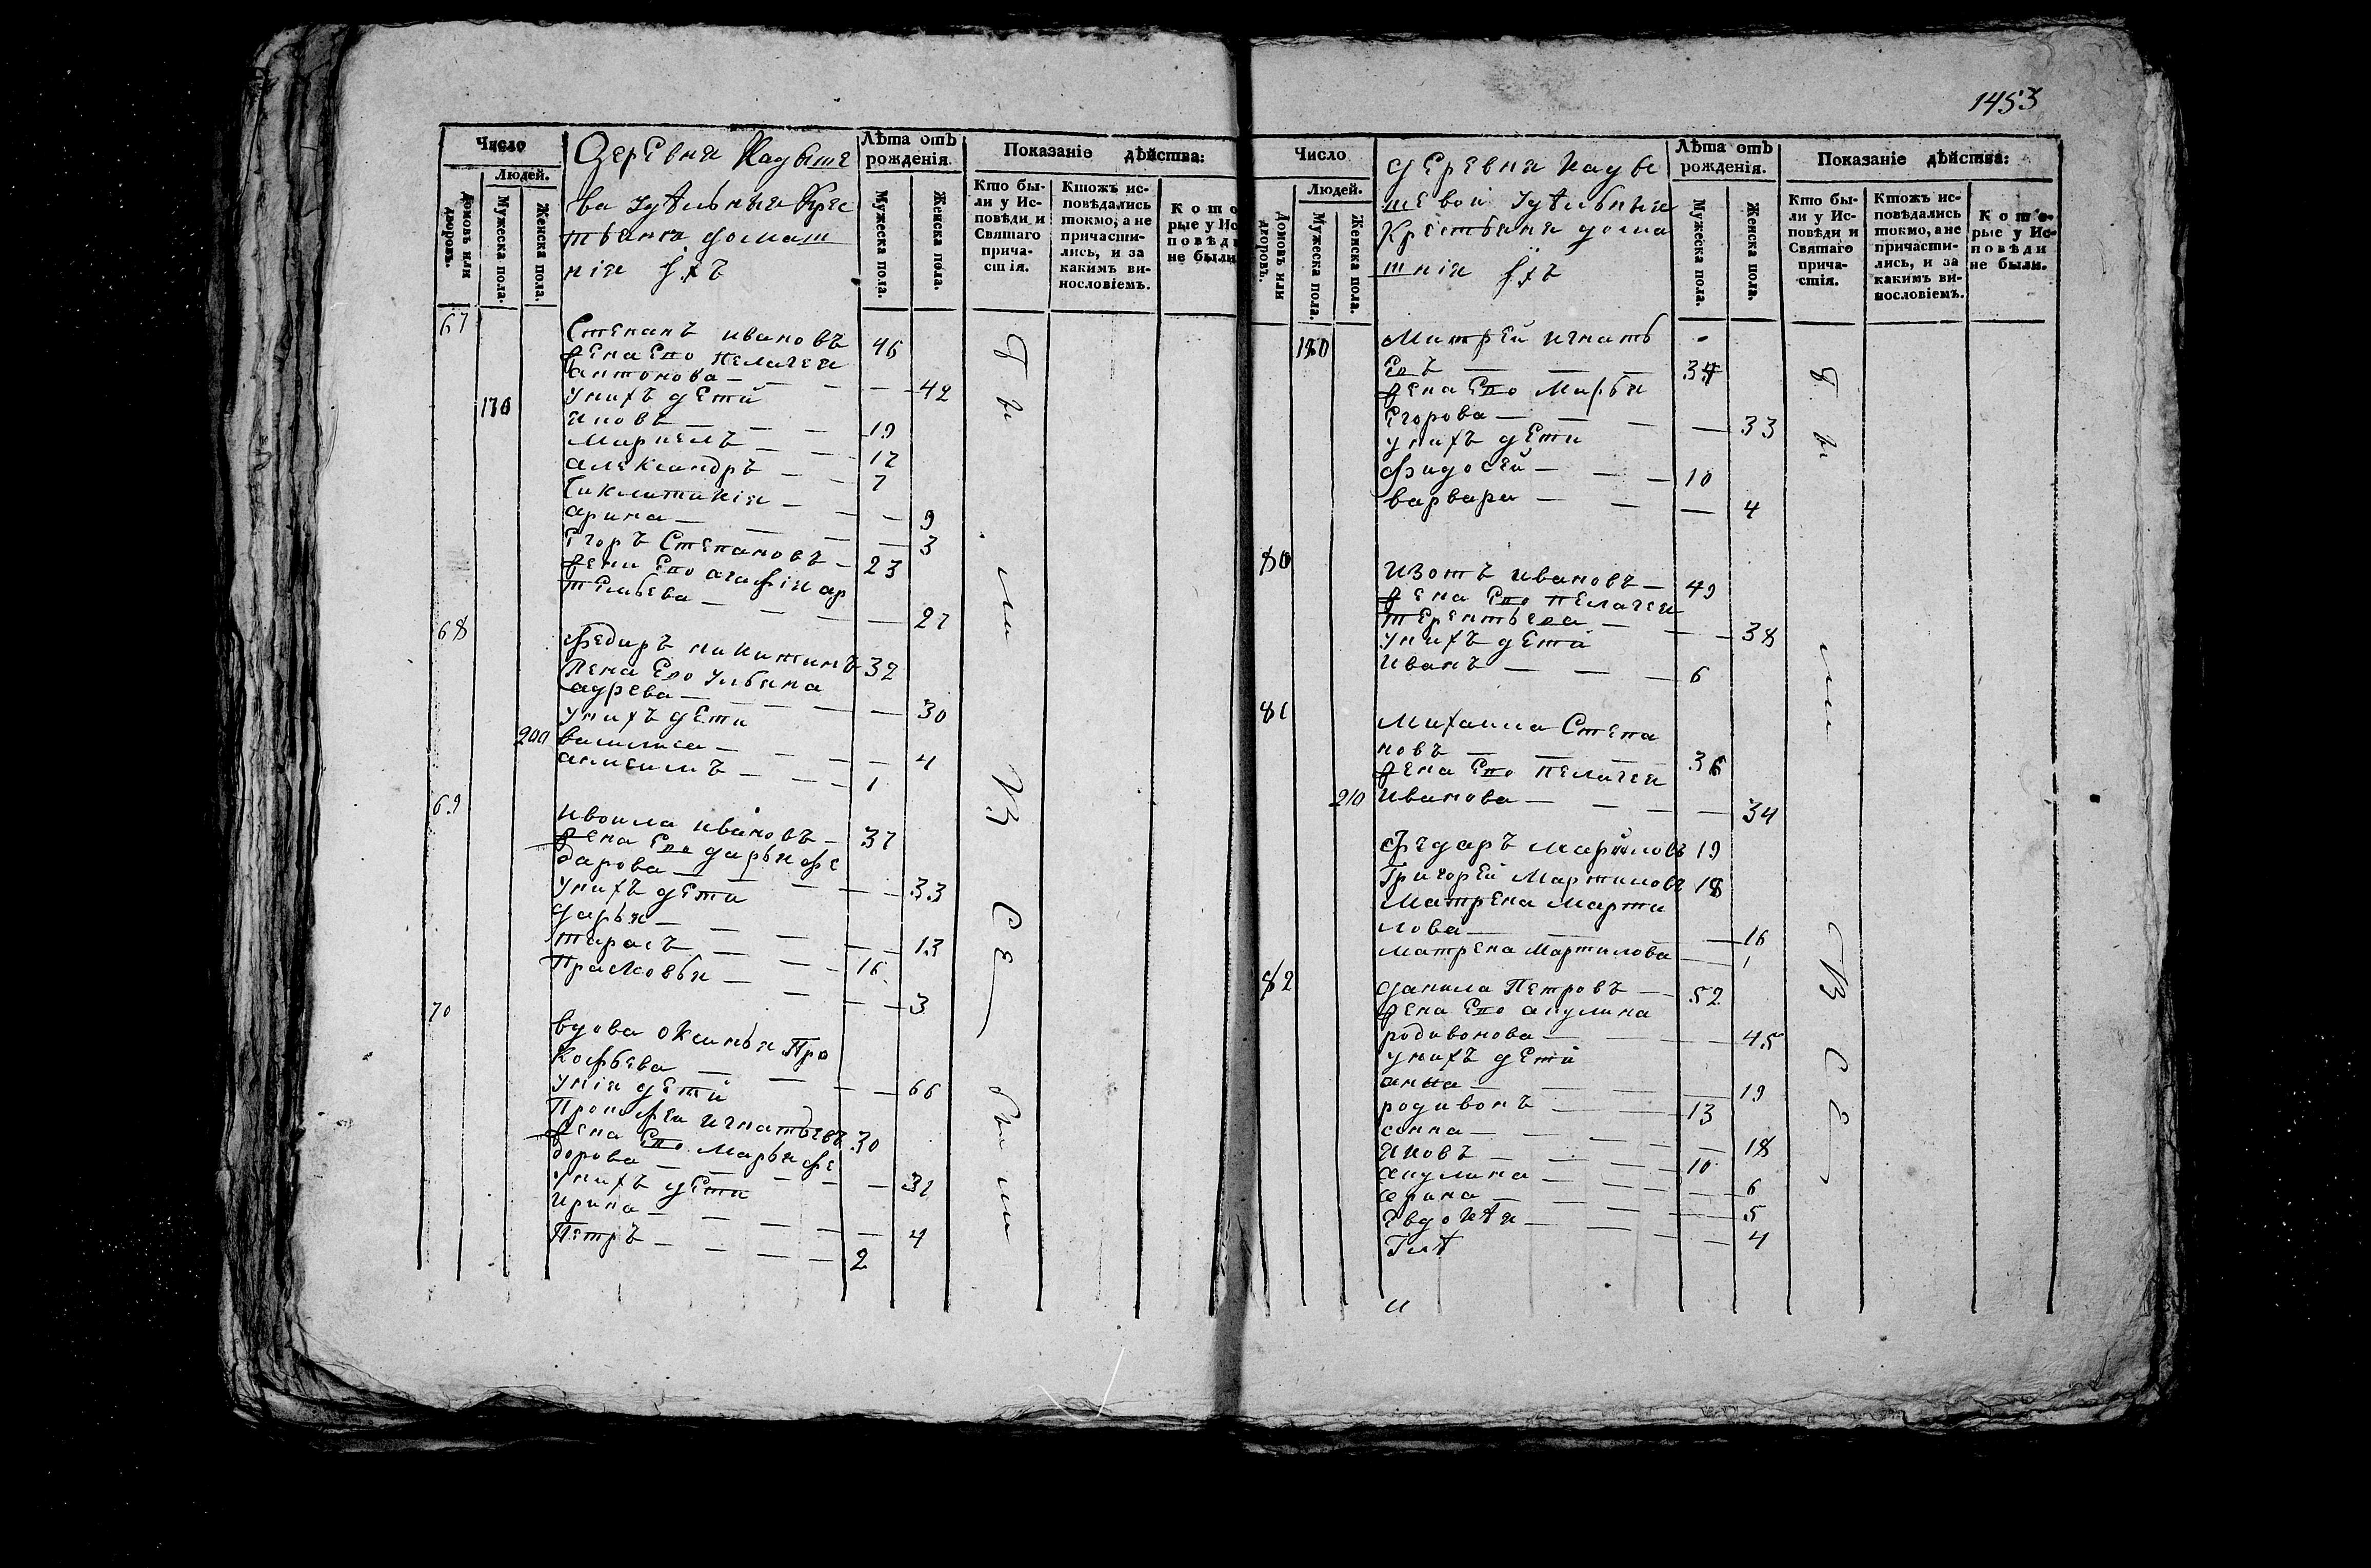 1453
Число
Людей.
Домовъ или дворовъ.
Мужеска пола.
Женска пола.
Деревня Кадыше
ва удѣльныя Крес
тьяня домаш
нія ихъ
Лѣта отъ рожденія.
Мужеска пола.
Женска пола.
Показаніе дѣйства:
Кто бы-
ли у Ис-
повѣди и
Святаго
прича-
стія.
Ктожъ ис-
повѣдались
токмо, а не
причасти-
лись, и за
какимъ ви-
нословіемъ.
Кото
рые у Ис
повѣди
не были
67
Степанъ ивановъ 46
жена Его пелагея
антонова — 42
унихъ дети
176
Яковъ — 19
Маркелъ — 12
александръ — 7
арина — 3
Егоръ Степановъ — 23
жена Его агафія ар
темьева — 27
68
Федаръ никитинъ 32
жена Его Ульяна
унихъ дети 30
200 василиса — 4
анисимъ — 1
69
ивоила ивановъ — 37
жена Его дарья фе
дарова — 33
унихъ дети
дарья — 13
тарасъ — 16
Прасковья — 3
70
вдова оксинья Про
кофьева — 66
унія дети
Прокофеи игнатьевъ 30
жена Его Марья фе
дорова — 31
унихъ дети
ирина — 4
Петръ — 2
Всѣ были
Число
Людей.
Домовъ или дворовъ.
Мужеска пола.
Женска пола.
деревня кады
шевой удѣльныя
Крестьяня дома
шнія ихъ
Лѣта отъ рожденія.
Мужеска пола.
Женска пола.
Показаніе дѣйства:
Кто бы-
ли у Ис-
повѣди и
Святаго
прича-
стія.
Ктожъ ис-
повѣдались
токмо, а не
причасти-
лись, и за
какимъ ви-
нословіемъ.
Кото-
рые у Ис-
повѣди
не были.
180 Митрей игнать
евъ — 34
жена Его Марья
Егорова — 33
унихъ дети
Фидосей — 10
варвара — 4
80
изотъ ивановъ — 49
жена Его пелагея
терентьева — 38
унихъ дети
иванъ — 6
81
Михаила Степа
новъ — 36
жена Его пелагея
210 иванова — 34
Григорей Мартиловъ 18
Матрена Марти
лова — 16
матрена Мартилова 1
82
данила Петровъ — 52
жена Его акулина
родивонова — 45
унихъ дети
анна — 19
родивонъ — 13
анна — 18
яковъ — 10
акулина — 6
арина — 5
Евдокѣя — 4